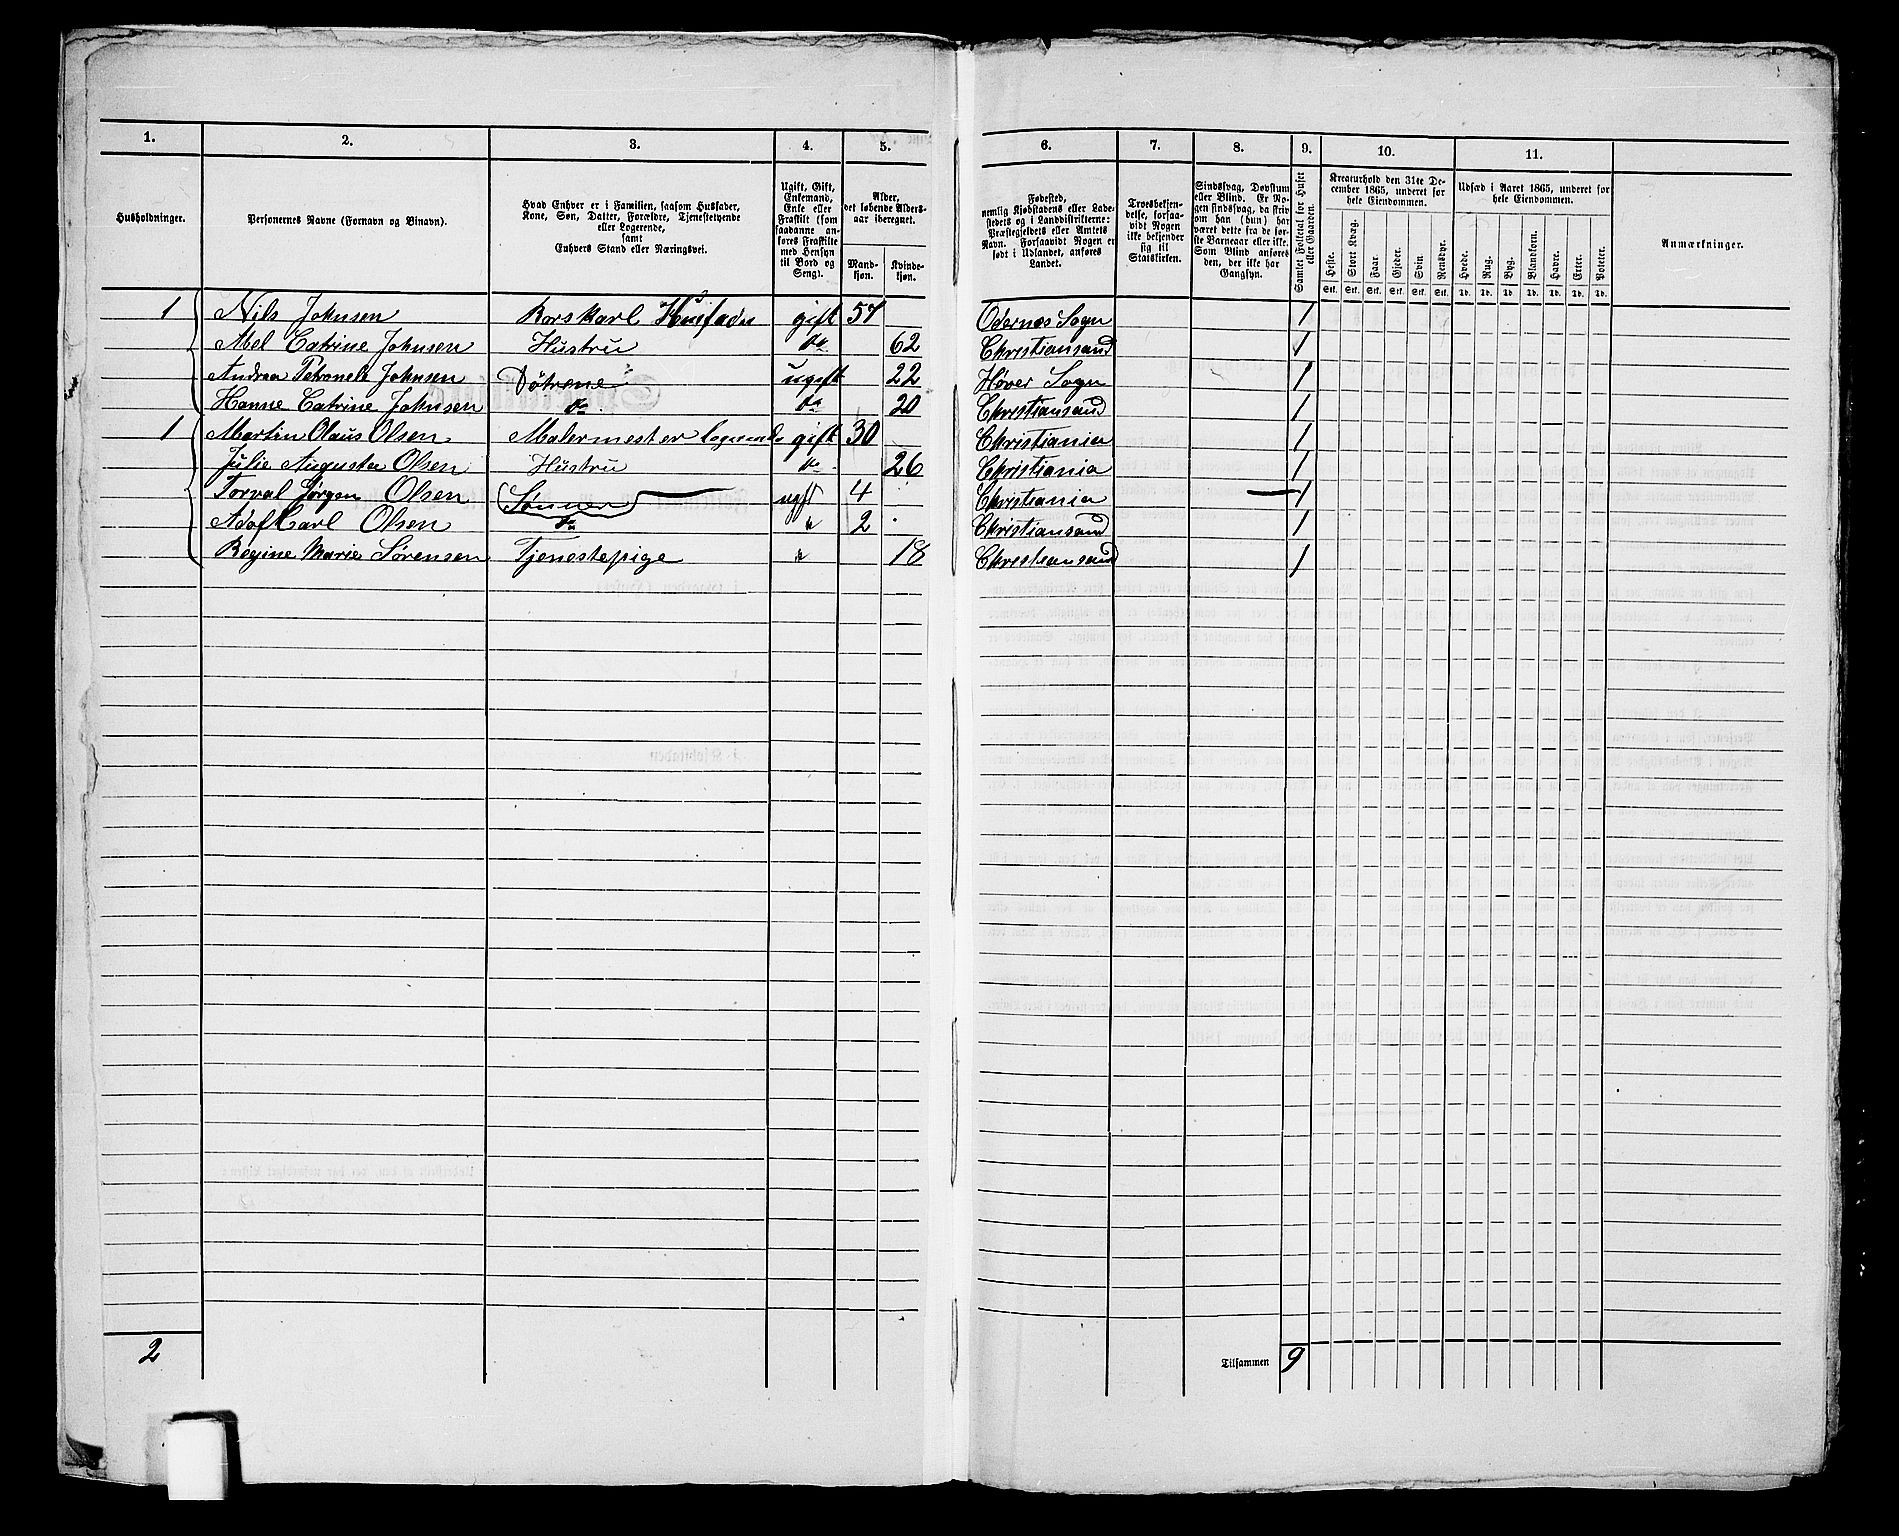 1. 2. 3. 4. 5. 6. 7. 8. 9. 10. 11.
Husholdninger.
Personernes Navne (Fornavn og Binavn).
Hvad Enhver er i Familien, saasom Husfader,
Kone, Søn, Datter, Forældre, Tjenestetyende
eller Logerende,
samt
Enhvers Stand eller Næringsvei.
Ugift, Gift,
Enkemand,
Enke eller
Fraskilt (som
saadanne an-
føres Fraskilte
med Hensyn
til Bord og
Seng).
Alder,
det løbende Alders-
aar iberegnet.
Mand-
kjøn.
Kvinde-
kjøn.
Fødested,
nemlig Kjøbstadens eller Lade-
stedets og i Landdistrikterne:
Præstegjeldets eller Amtets
Navn. Forsaavidt Nogen er
født i Udlandet, anføres
Landet.
Troesbekjen-
delse, forsaa-
vidt Nogen
ikke bekjender
sig til
Statskirken.
Sindssvag, Døvstum
eller Blind. Er No-
gen sindssvag, da skriv
om han (hun) har
været dette fra de før-
ste Barneaar eller ikke.
Som Blind ansøres
den, der ikke har
Gangsyn.
Samlet Folketal for Huset
eller Gaarden.
Kreaturhold den 31te De-
cember 1865, underet for
hele Eiendommen.
Heste. Stort Kvæg. Faar. Gjeder. Svin. Rensdyr.
Stk. Stk. Stk. Stk. Stk. Stk.
Udsæd i Aaret 1865, underet for
hele Eiendommen.
Hvede. Rug. Byg. Blandkorn. Havre. Erter. Poteter.
Td. Td. Td. Td. Td. Td. Td.
Anmærkninger.
1 Nils Johnsen Borskarl Husfader gift 57 Odernæs Sogn 1
Abel Catrine Johnsen Hustru do 62 Christiansand 1
Andrea Petronele Johnsen Døtrene ugift 22 Høver Sogn 1
Hanne Catrine Johnsen do do 20 Christiansand 1
1 Martin Olaus Olsen Malermester Logerende gift 30 Christiania 1
Julie Augusta Olsen Hustru do 26 Christiania 1
Torval Jørgen Olsen Sønner ugift 4 Christiania 1
Adof Carl Olsen do " 2 Christiansand 1
Regine Marie Sørensen Tjenestepige " 18 Christiansand 1
2 Tilsammen 9